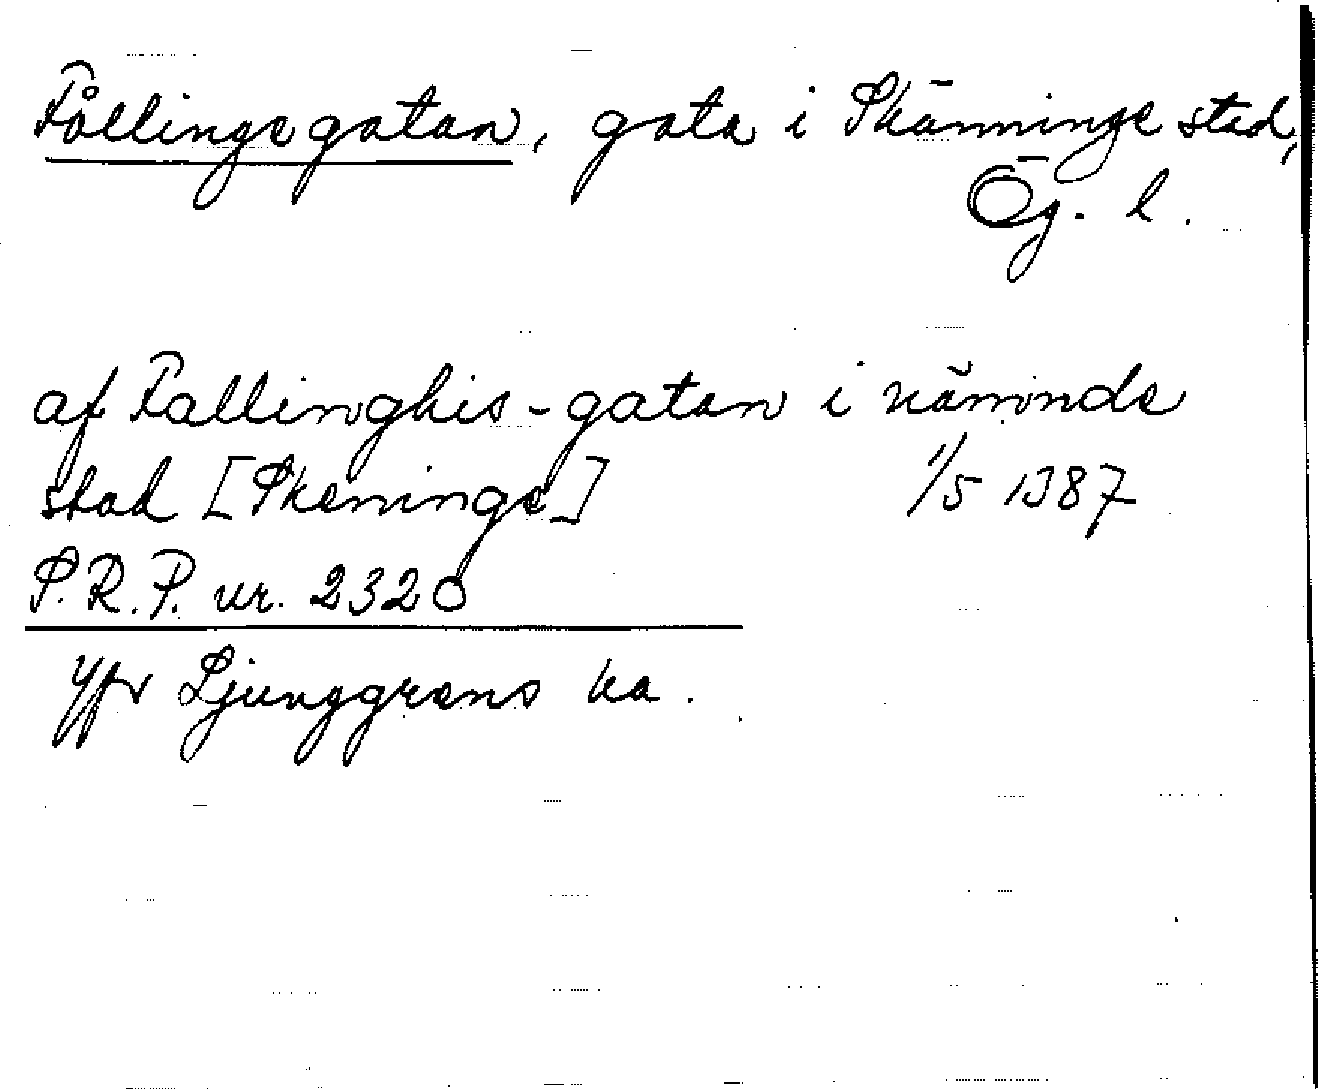 Fållingegatan, gata i Skänninge stad,
Ög. l.
af Fallinghis-gatan i nämnde
stad [Skeninge] 1/5 1387
S.R.P. nr. 2320
Jfr Ljunggrens ka.